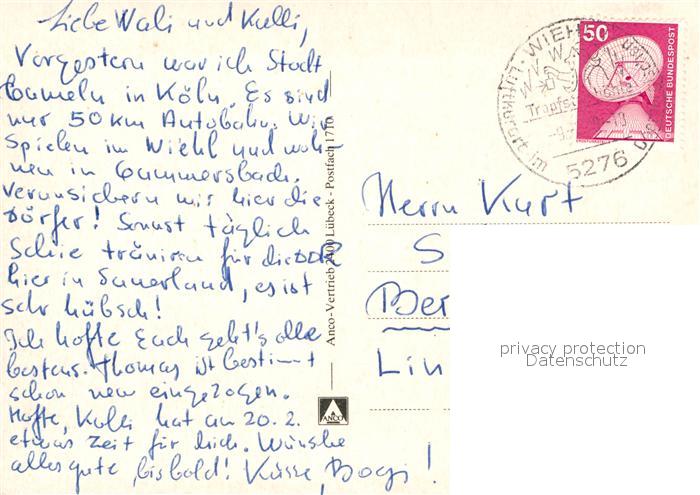 Liebe Wali und Kulli,
Vorgestern war ich Stadt
bumeln in Köln. Es sind
nur 50 km Autobahn. Wir
spielen im Wiehl und woh-
nen in Gummersbach.
Verunsichern wir hier die
Dörfer! Sonst täglich
Schie träniren für die DDR
hier in Sauerland, es ist
sehr hübsch!
Ich hoffe Euch geht's alle
bestens. Thomas ist bestimmt
schon neu eingezogen.
Hoffe, Kulli hat am 20.2.
etwas Zeit für dich. Wünsche
alles gute, bis bald! Küsse,
Anco-Vertrieb 2400 Lübeck - Postfach 1710
ANCO
50
DEUTSCHE BUNDESPOST
WIEHL
Luftkurort im
5276
Herrn Kurt
S
Ber
Lin
privacy protection
Datenschutz